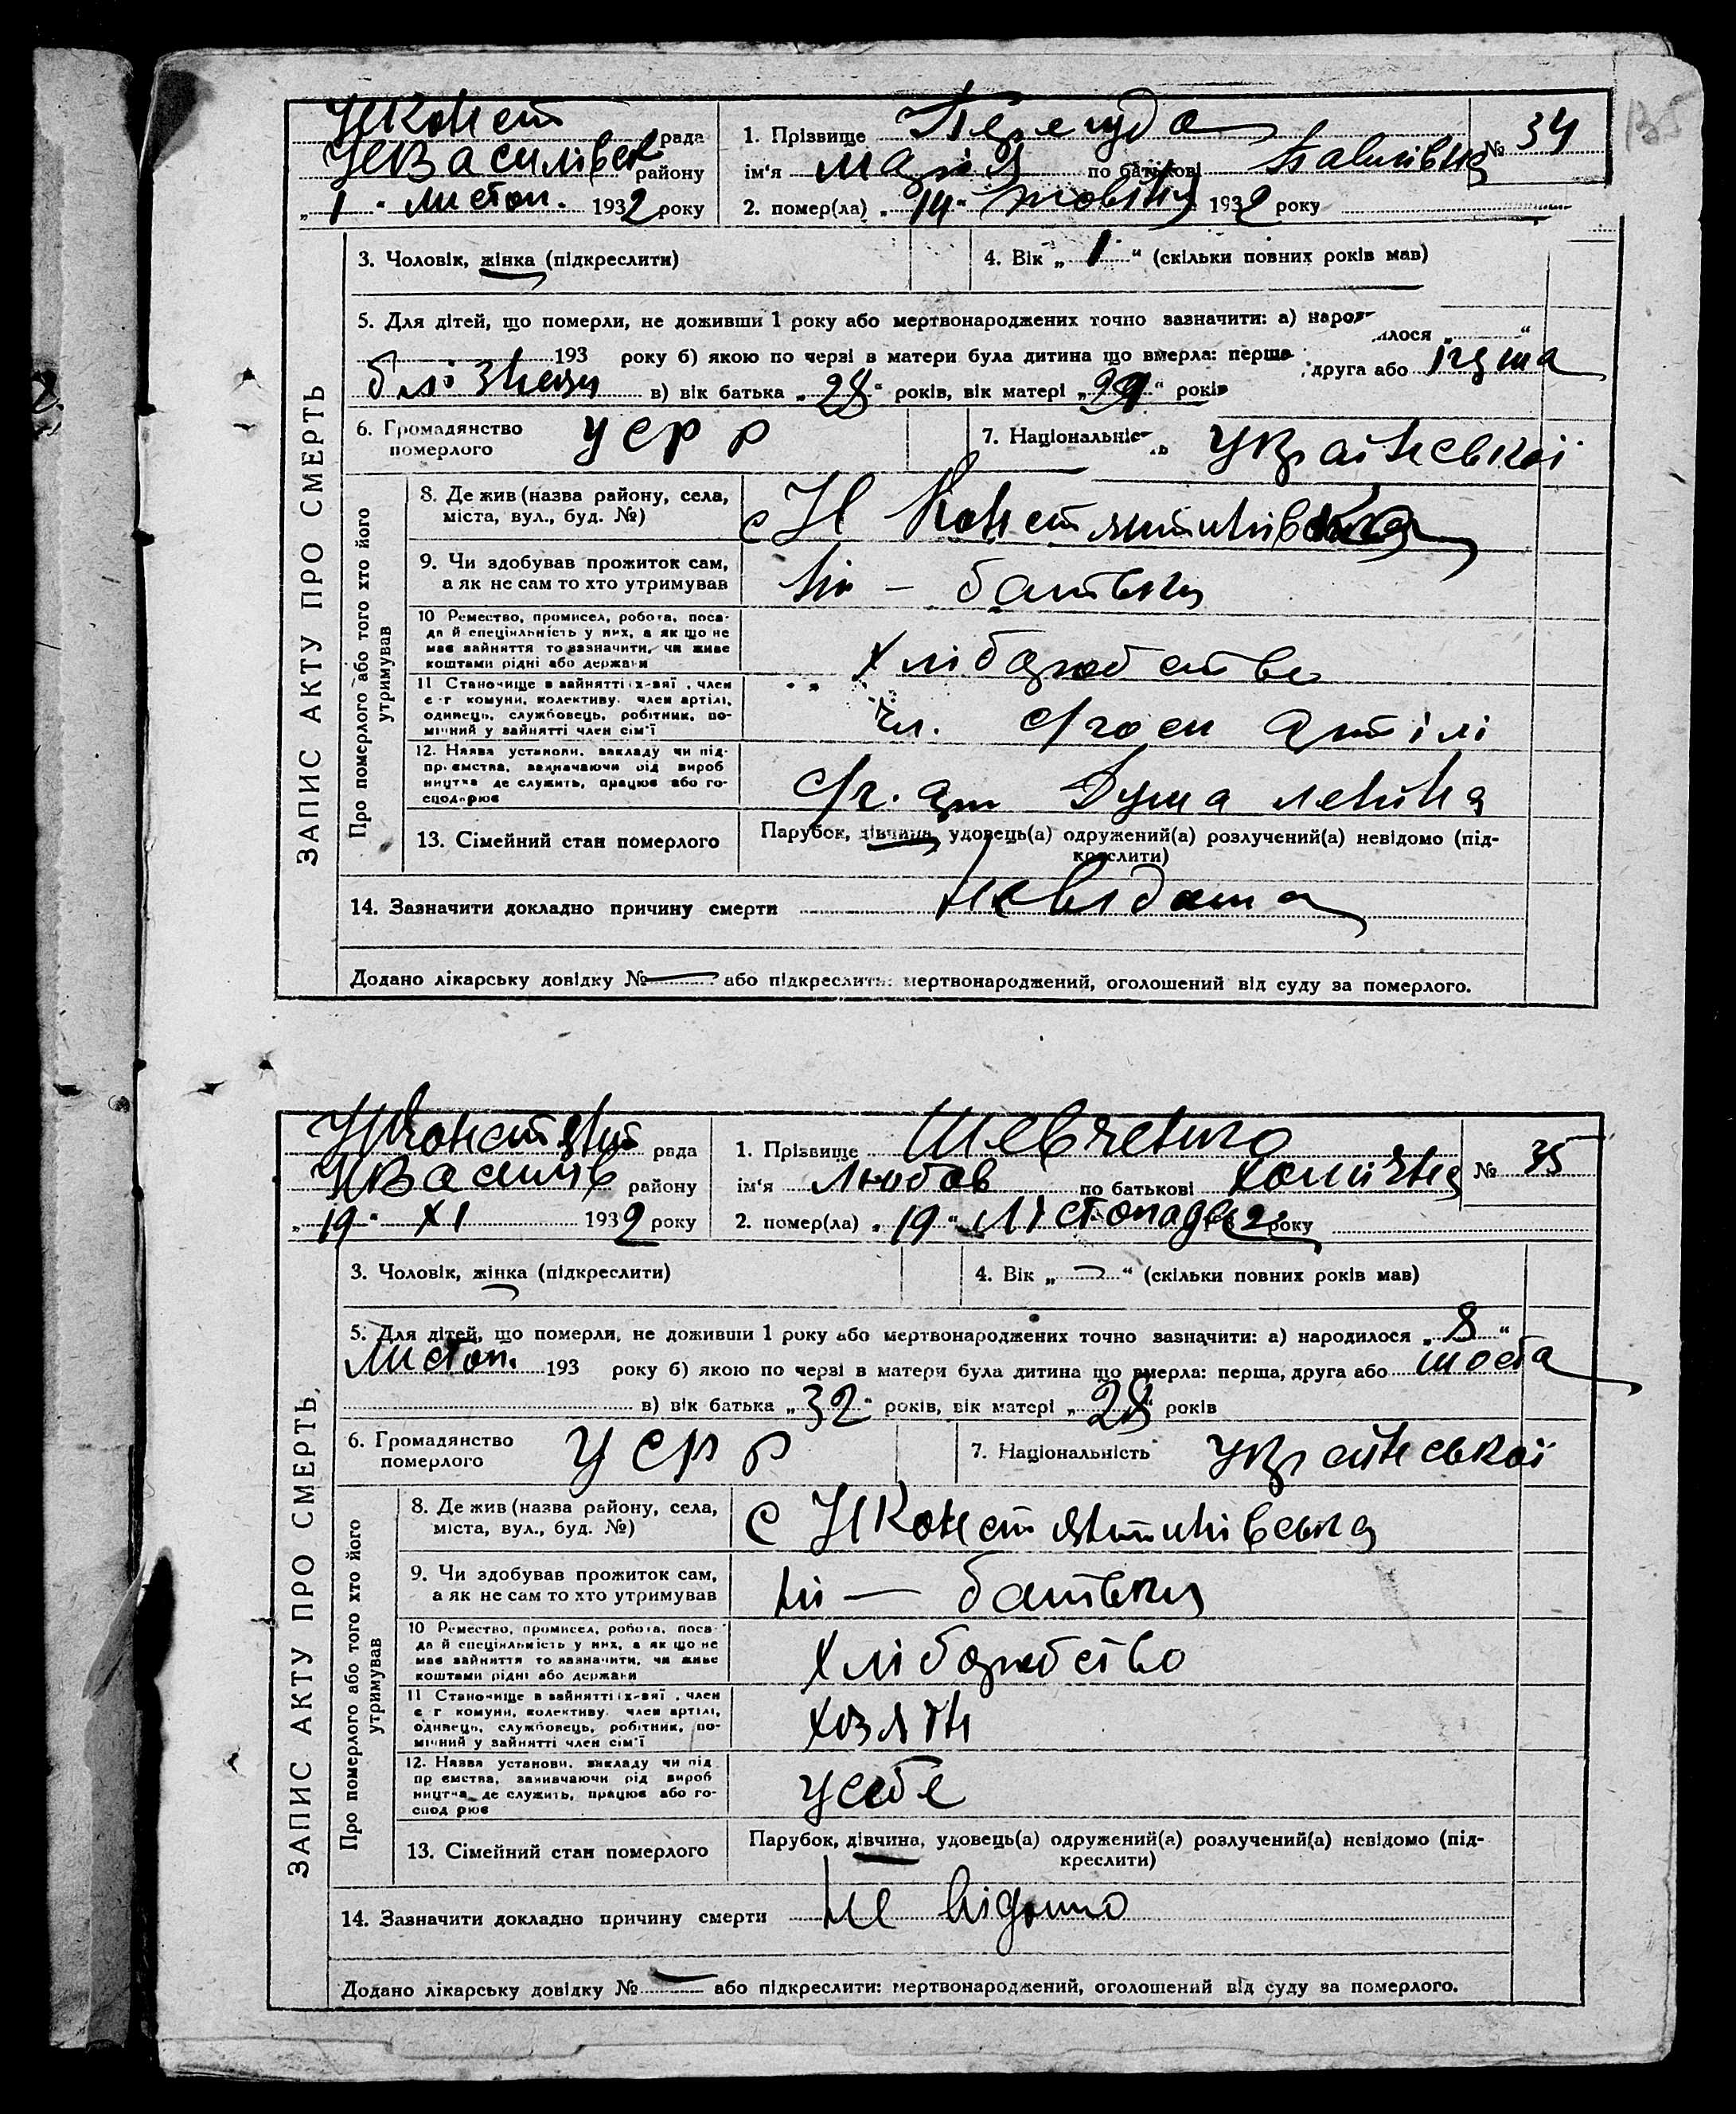 135
ЗАПИС АКТУ ПРО СМЕРТЬ
НКонст рада
НВасилівск району
„1“ листоп. 1932 року
1. Прізвище
ім'я Марія по батькові Павлівна
№ 34
2. помер(ла) „14“ жовтня 1932 року
3. Чоловік, жінка (підкреслити)
4. Вік „1“ (скільки повних років мав)
5. Для дітей, що померли, не доживши 1 року або мертвонароджених точно зазначити: а) народ илося „ “
193 року б) якою по черзі в матери була дитина що вмерла: перша, друга або перша
близнязи в) вік батька „28“ років, вік матері „29“ років
6. Громадянство померлого УСРР
7. Національність української
Про померлого або того хто його утримував
8. Де жив (назва району, села, міста, вул., буд. №) с Н Константинівка
9. Чи здобував прожиток сам, а як не сам то хто утримував ні — батьки
10 Ремество, промисел, робота, посада й спеціяльність у них, а як що не має зайняття то зазначити, чи живе коштами рідні або держави хліборобство
11 Становище в зайнятті член с-г комуни, колективу, член артілі, одинець, службовець, робітник, помічний у зайнятті член сім'ї чл. с/госп артілі
12. Назва установи, закладу чи підприємства, зазначаючи рід виробництва де служить, працює або господарює с/г. арт Дума леніна
13. Сімейний стан померлого Парубок, дівчина, удовець(а) одружений(а) розлучений(а) невідомо (підкреслити)
14. Зазначити докладно причину смерти невідома
Додано лікарську довідку № — або підкреслить: мертвонароджений, оголошений від суду за померлого.
ЗАПИС АКТУ ПРО СМЕРТЬ.
НКонстянт рада
НВасилів району
„19“ XI 1932 року
1. Прізвище Шевченко
ім'я Любов по батькові Хомівна
№ 35
2. помер(ла) „19“ Листопада 2 року
3. Чоловік, жінка (підкреслити)
4. Вік „—“ (скільки повних років мав)
5. Для дітей, що померли, не доживши 1 року або мертвонароджених точно зазначити: а) народилося „8“
Листоп. 193 року б) якою по черзі в матери була дитина що вмерла: перша, друга або шоста
в) вік батька „32“ років, вік матері „28“ років
6. Громадянство померлого УСРР
7. Національність української
Про померлого або того хто його утримував
8. Де жив (назва району, села, міста, вул., буд. №) с НКонстянтинівська
9. Чи здобував прожиток сам, а як не сам то хто утримував ні — батьки
10 Ремество, промисел, робота, посада й спеціяльність у них, а як що не має зайняття то зазначити, чи живе коштами рідні або держави хліборобство
11 Становище в зайнятті член с г комуни, колективу, член артілі, одинець, службовець, робітник, помічний у зайнятті член сім'ї хозяїн
12. Назва установи, закладу чи підприємства, зазначаючи рід виробництва де служить, працює або господарює у себе
13. Сімейний стан померлого Парубок, дівчина, удовець(а) одружений(а) розлучений(а) невідомо (підкреслити)
14. Зазначити докладно причину смерти не відомо
Додано лікарську довідку № — або підкреслити: мертвонароджений, оголошений від суду за померлого.